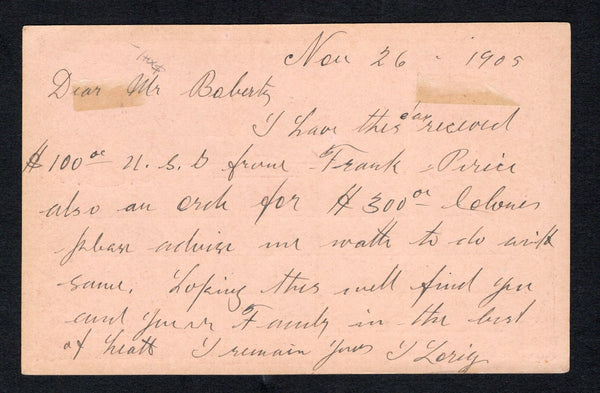 Nov 26 - 1905
Dear Mr Roberts
I have this day received
$100 00 U.S.G from Frank Pirie
also an orde for $300 00 Colones
please advise me watt to do with
same. Hoping this will find you
and your Family in the best
of healt I remain yours